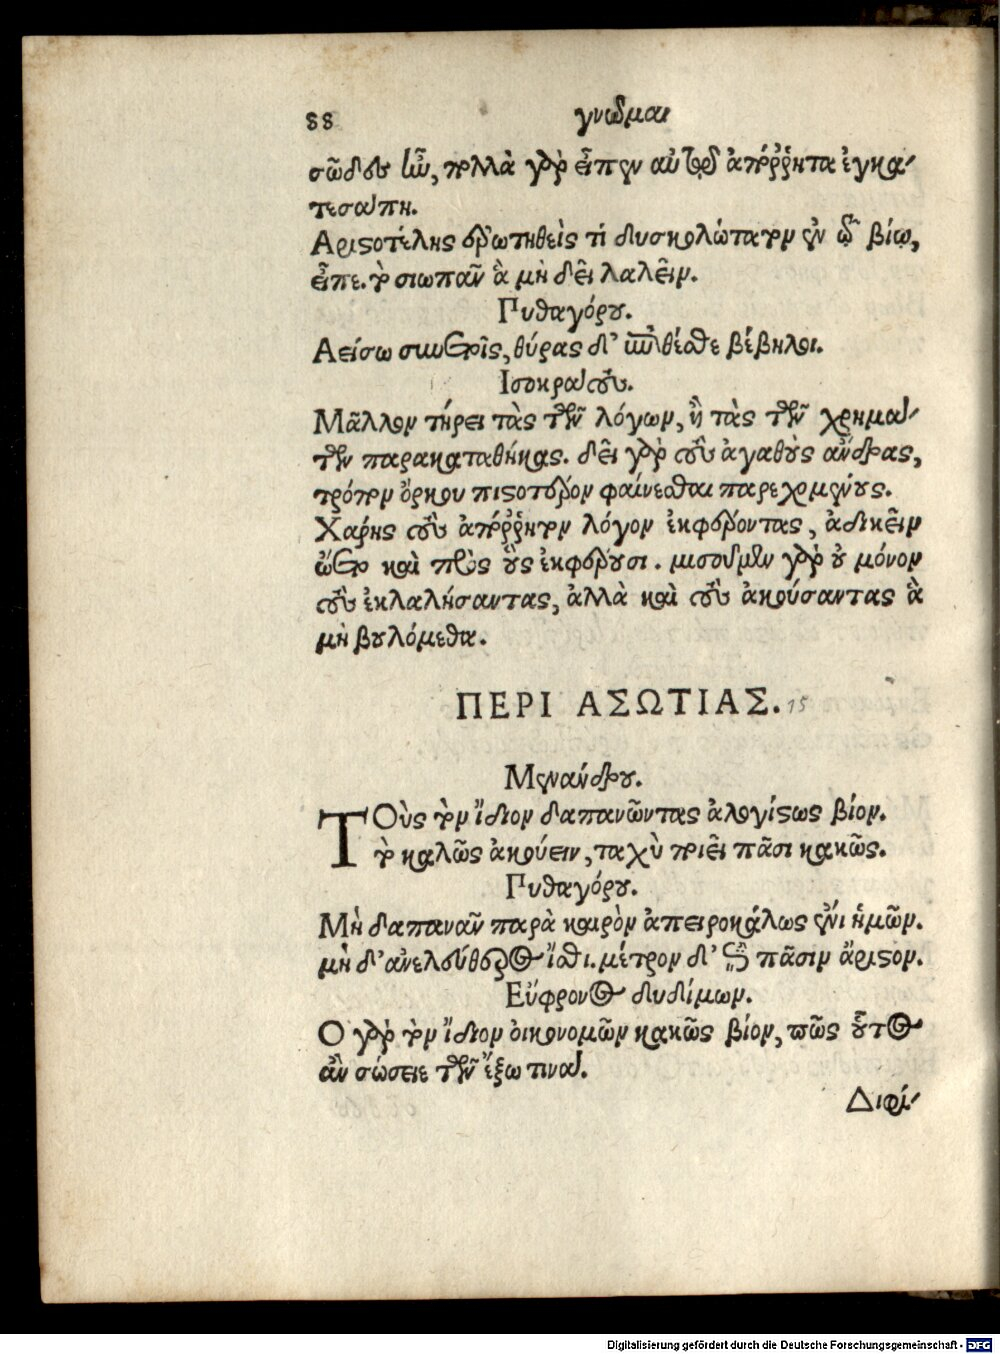 88 γνῶμαι
σῶδευ ἰὼ, πολλὰ γὰρ εἶπεν αὐτοῦ ἀπόῤῥητα ἐγκα-
τεσάπη.
Αριστοτέλης ἐρωτηθεὶς τί δυσκολώτατον ἐν τῷ βίῳ,
εἶπε. τὸ σιωπᾶν ἃ μὴ δεῖ λαλεῖν.
Πυθαγόρου.
Αείσω συνετοῖς, θύρας δ' ἐπίθεσθε βέβηλοι.
Ισοκράτους.
Μᾶλλον τήρει τὰς τῶν λόγων, ἢ τὰς τῶν χρημά-
των παρακαταθήκας. δεῖ γὰρ τοὺς ἀγαθοὺς ἄνδρας,
τρόπον ὅρκου πιστότερον φαίνεσθαι παρεχομένους.
Χάρης τοὺς ἀπόῤῥητον λόγον ἐκφέροντας, ἀδικεῖν
ὥετο καὶ πρὸς οὓς ἐκφέρουσι. μισοῦμεν γὰρ οὐ μόνον
τοὺς ἐκλαλήσαντας, ἀλλὰ καὶ τοὺς ἀκούσαντας ἃ
μὴ βουλόμεθα.
ΠΕΡΙ ΑΣΩΤΙΑΣ. 15
Μενάνδρου.
ΤΟὺς τὸν ἴδιον δαπανῶντας ἀλογίστως βίον.
τὸ καλῶς ἀκούειν, ταχὺ ποιεῖ πᾶσι κακῶς.
Πυθαγόρου.
Μὴ δαπανᾶν παρὰ καιρὸν ἀπειροκάλως ἐνὶ ἡμῶν.
μὴ δ' ἀνελεύθερος ἴσθι. μέτρον δ' ἐπὶ πᾶσιν ἄριστον.
Εὔφρονος διδύμων.
Ο γὰρ τὸν ἴδιον οἰκονομῶν κακῶς βίον, πῶς οὗτος
ἂν σώσειε τῶν ἔξω τινά.
Διφί-
Digitalisierung gefördert durch die Deutsche Forschungsgemeinschaft - DFG